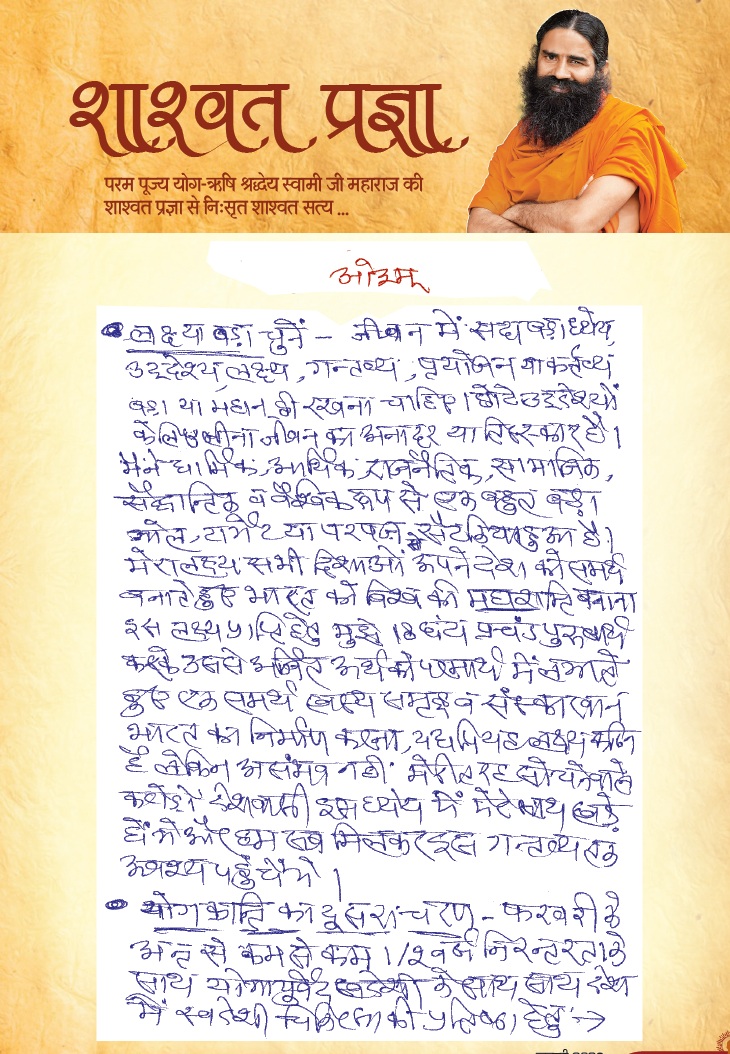 शाश्वत प्रज्ञा
परम पूज्य योग-ऋषि श्रद्धेय स्वामी जी महाराज की
शाश्वत प्रज्ञा से निःसृत शाश्वत सत्य ...
ओ३म्
लक्ष्य बड़ा चुनें – जीवन में सदा बड़ा ध्येय,
उद्देश्य, लक्ष्य, गन्तव्य, प्रयोजन या कर्तव्य
बड़ा या महान ही रखना चाहिए। छोटे उद्देश्यों
के लिए जीना जीवन का अनादर या तिरस्कार है।
मैंने धार्मिक, आर्थिक, राजनैतिक, सामाजिक,
सैद्धान्तिक व वैश्विक रूप से एक बहुत बड़ा
गोल, टार्गेट या परपज सैट किया हुआ है।
मेरा लक्ष्य सभी दिशाओं अपने देश को समर्थ
बनाते हुए भारत को विश्व की महाशक्ति बनाना
इस लक्ष्य प्राप्ति हेतु मुझे 18 घंटे प्रचंड पुरुषार्थ
करके उससे अर्जित अर्थ को परमार्थ में लगाते
हुए एक समर्थ स्वस्थ समृद्ध व संस्कारवान
भारत का निर्माण करना, यद्यपि यह लक्ष्य कठिन
है लेकिन असंभव नहीं मेरी तरह सोचने वाले
करोड़ों देशवासी इस ध्येय में मेरे साथ खड़े
होंगे और हम सब मिलकर इस गन्तव्य तक
अवश्य पहुंचेंगे।
योग क्रान्ति का दूसरा चरण – फरवरी के
अन्त से कम से कम 1/2 वर्ष निरन्तरता के
साथ योग आयुर्वेद स्वदेशी के साथ साथ देश
में स्वदेशी चिकित्सा की प्रतिष्ठा हेतु →